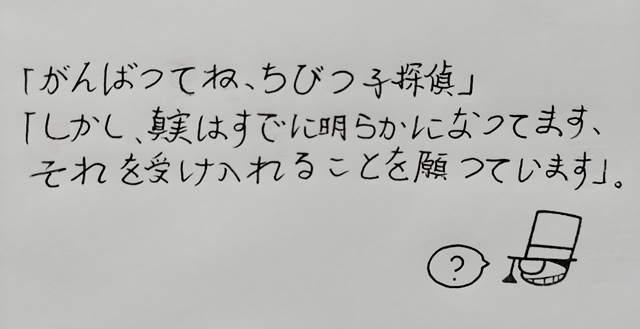 「がんばつてね、ちびつ子探偵」
「しかし、真実はすでに明らかになつてます、
それを受け入れることを願つています」。
?